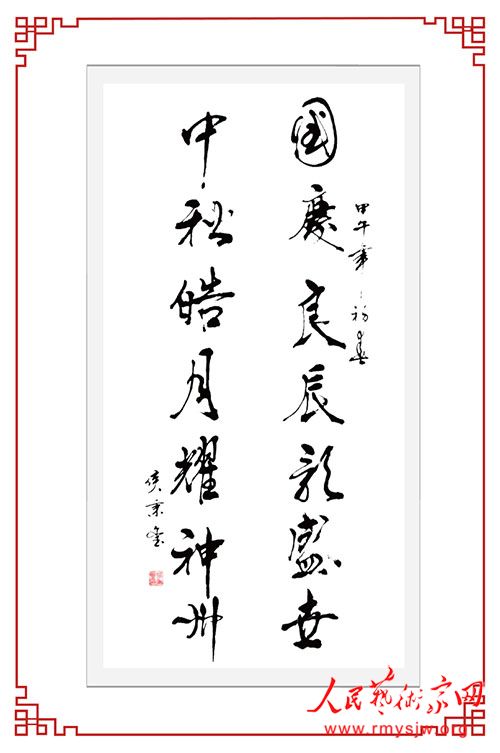 國慶良辰歌盛世
甲午年
中秋皓月耀神州
侯秉
人民藝術家网
www.rmysjw.org